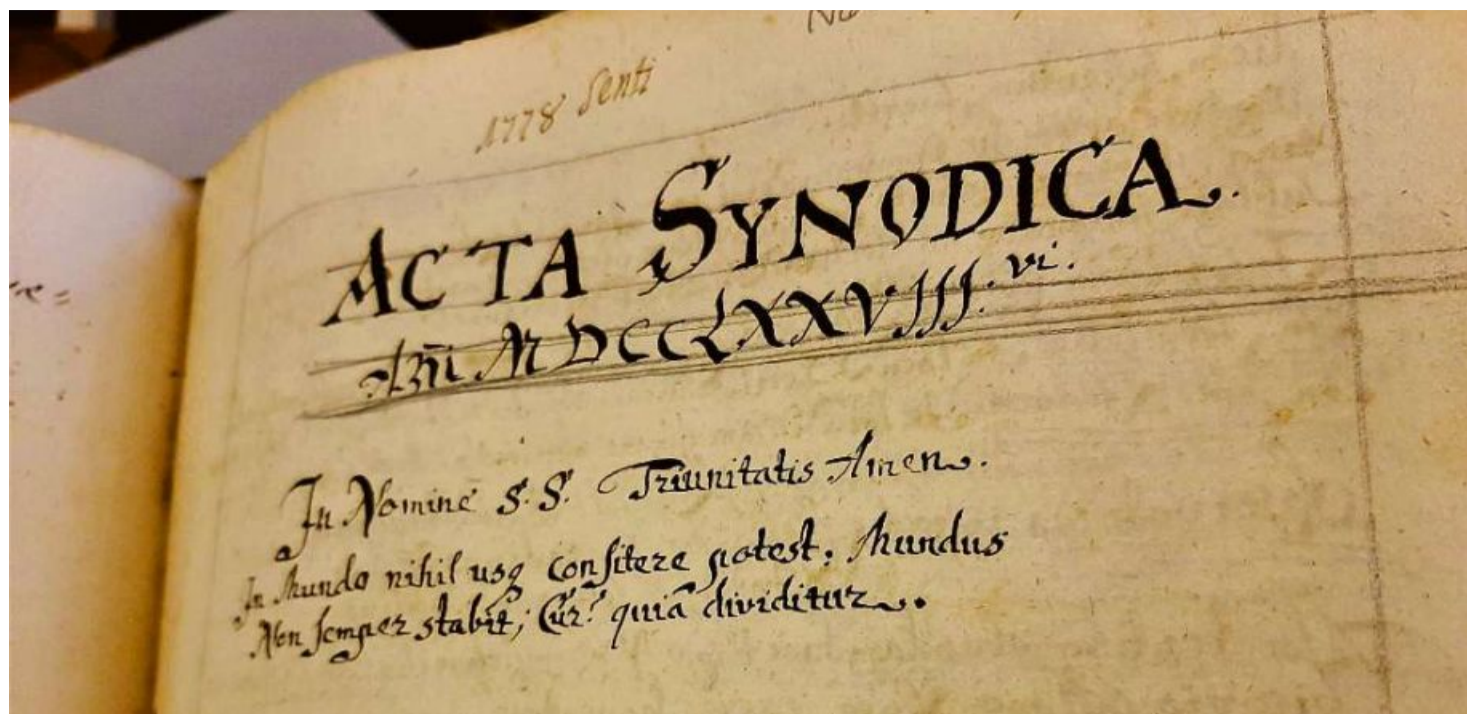 1778 Senti
ACTA SYNODICA.
Añi MDCCLXXVIII. vi.
In Nomine S. S. Triunitatis Amen.
In Mundo nihil usq consitere potest. Mundus
Non semper stabit; Cur? quia dividitur.